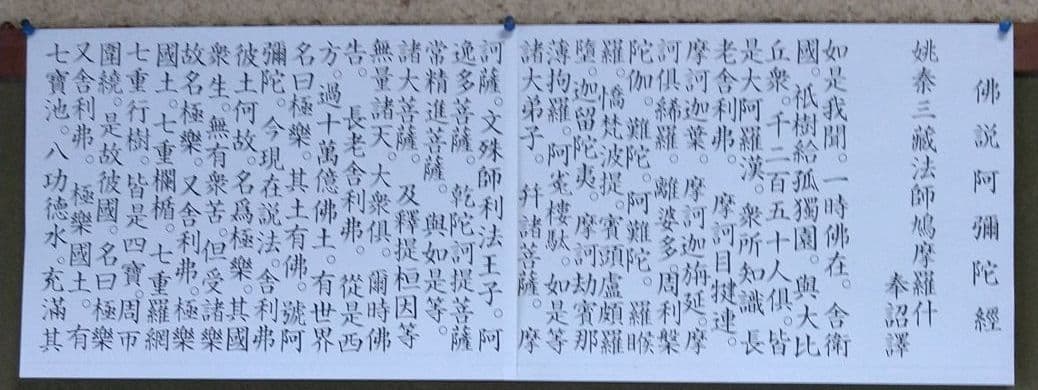 佛説阿彌陀經
姚泰三藏法師鳩摩羅什
奉詔譯
如是我聞。一時佛在。舍衛
國。祇樹給孤獨園。與大比
丘衆。千二百五十人俱。皆
是大阿羅漢。衆所知識 長
老舍利弗。 摩訶目犍連。
摩訶迦葉。摩訶迦旃延。摩
訶俱絺羅。離婆多。周利槃
陀伽。難陀。阿難陀。羅睺
羅。憍梵波提。賓頭盧頗羅
墮。迦留陀夷。摩訶劫賓那
薄拘羅。阿㝹樓駄。如是等
諸大弟子。 幷諸菩薩。摩
訶薩。文殊師利法王子。阿
逸多菩薩。 乾陀訶提菩薩
常精進菩薩。 與如是等。
諸大菩薩。 及釋提桓因等
無量諸天。大衆俱。爾時佛
告。 長老舍利弗。 從是西
方。過十萬億佛土。有世界
名曰極樂。其土有佛。號阿
彌陀。今現在説法。舍利弗
彼土何故。名爲極樂。其國
衆生。無有衆苦。但受諸樂
故名極樂。又舍利弗。極樂
國土。七重欄楯。七重羅網
七重行樹。皆是四寶。周帀
圍繞。是故彼國。名曰極樂
又舍利弗。 極樂國土。有
七寶池。八功德水。充滿其